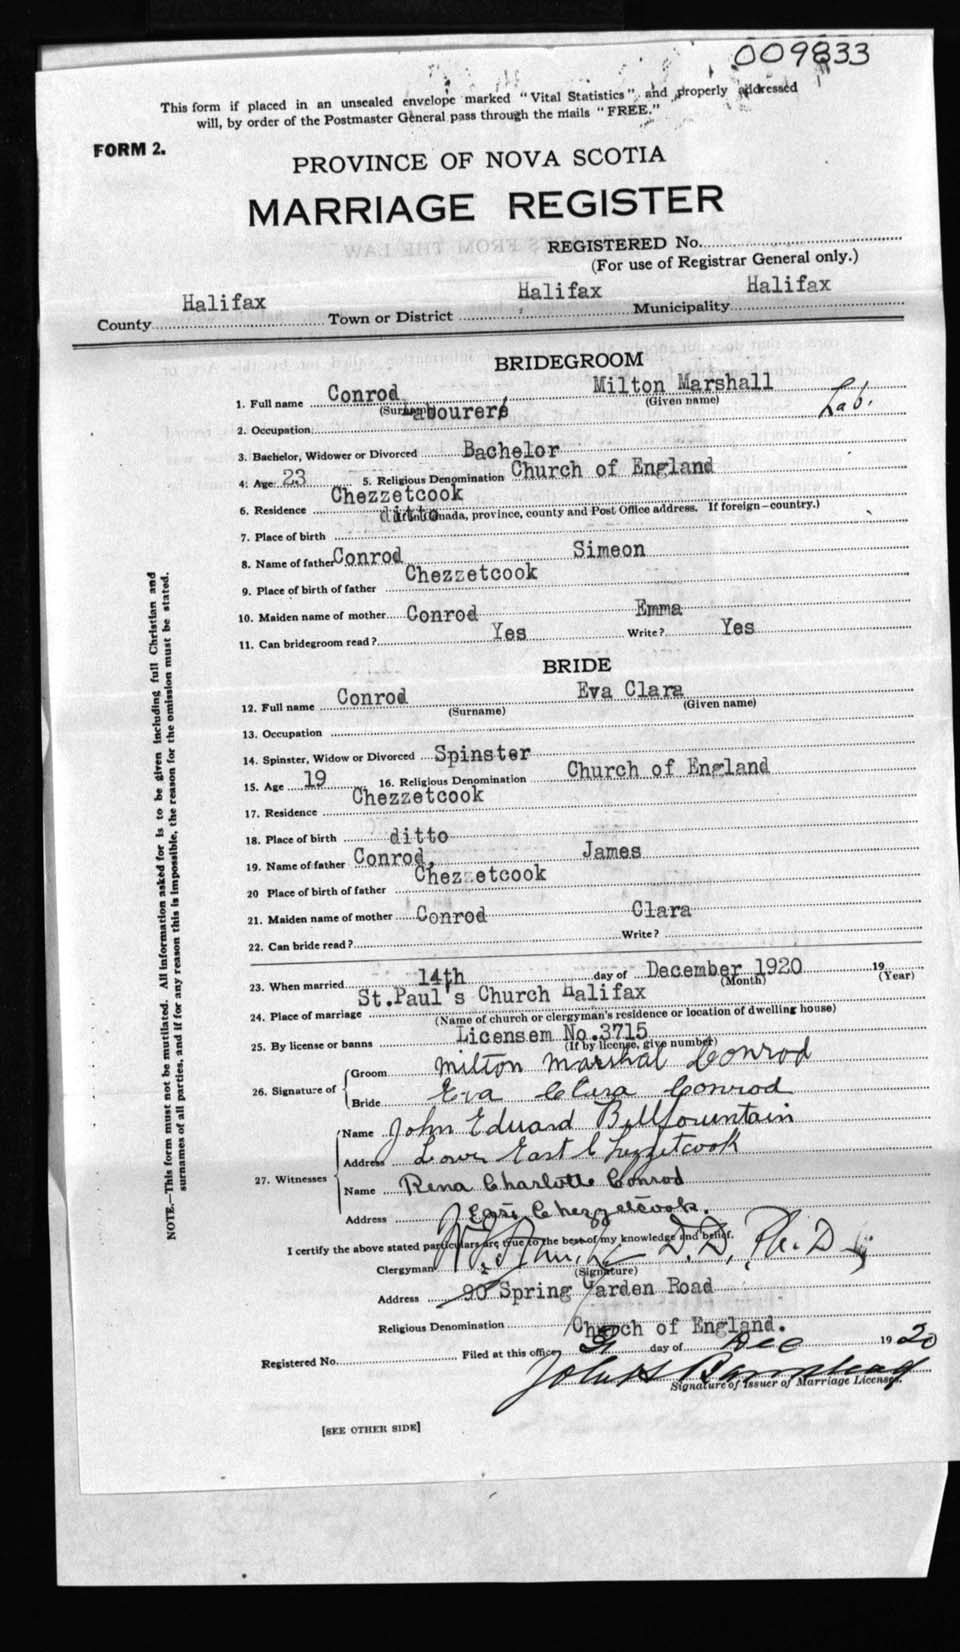 009833
This form if placed in an unsealed envelope marked "Vital Statistics" and properly addressed
will, by order of the Postmaster General pass through the mails "FREE."
FORM 2.
PROVINCE OF NOVA SCOTIA
MARRIAGE REGISTER
REGISTERED No.
(For use of Registrar General only.)
County Halifax Town or District Halifax Municipality Halifax
BRIDEGROOM
1. Full name Conrod Milton Marshall
(Surname) (Given name)
2. Occupation abourer Lab.
3. Bachelor, Widower or Divorced Bachelor
4. Age 23 5. Religious Denomination Church of England
6. Residence Chezzetcook
(If in Canada, province, county and Post Office address. If foreign—country.)
7. Place of birth ditto
8. Name of father Conrod Simeon
9. Place of birth of father Chezzetcook
10. Maiden name of mother Conrod Emma
11. Can bridegroom read? Yes Write? Yes
BRIDE
12. Full name Conrod Eva Clara
(Surname) (Given name)
13. Occupation
14. Spinster, Widow or Divorced Spinster
15. Age 19 16. Religious Denomination Church of England
17. Residence Chezzetcook
18. Place of birth ditto
19. Name of father Conrod, James
20 Place of birth of father Chezzetcook
21. Maiden name of mother Conrod Clara
22. Can bride read? Write?
23. When married 14th day of December 1920 19
(Month) (Year)
24. Place of marriage St.Paul's Church Halifax
(Name of church or clergyman's residence or location of dwelling house)
25. By license or banns Licensem No.3715
(If by license, give number)
26. Signature of
Groom Milton Marshal Conrod
Bride Eva Clara Conrod
27. Witnesses
Name John Eduard Bellfountain
Address Lower East Chezzetcook
Name Rena Charlotte Conrod
Address East Chezzetcook.
I certify the above stated particulars are true to the best of my knowledge and belief.
Clergyman D.D, Ph.D
(Signature)
Address 90 Spring Garden Road
Religious Denomination Church of England.
Registered No. Filed at this office day of Dec 1920
Signature of Issuer of Marriage Licenses.
[SEE OTHER SIDE]
NOTE.—This form must not be mutilated. All information asked for is to be given including full Christian and
surnames of all parties, and if for any reason this is impossible, the reason for the omission must be stated.